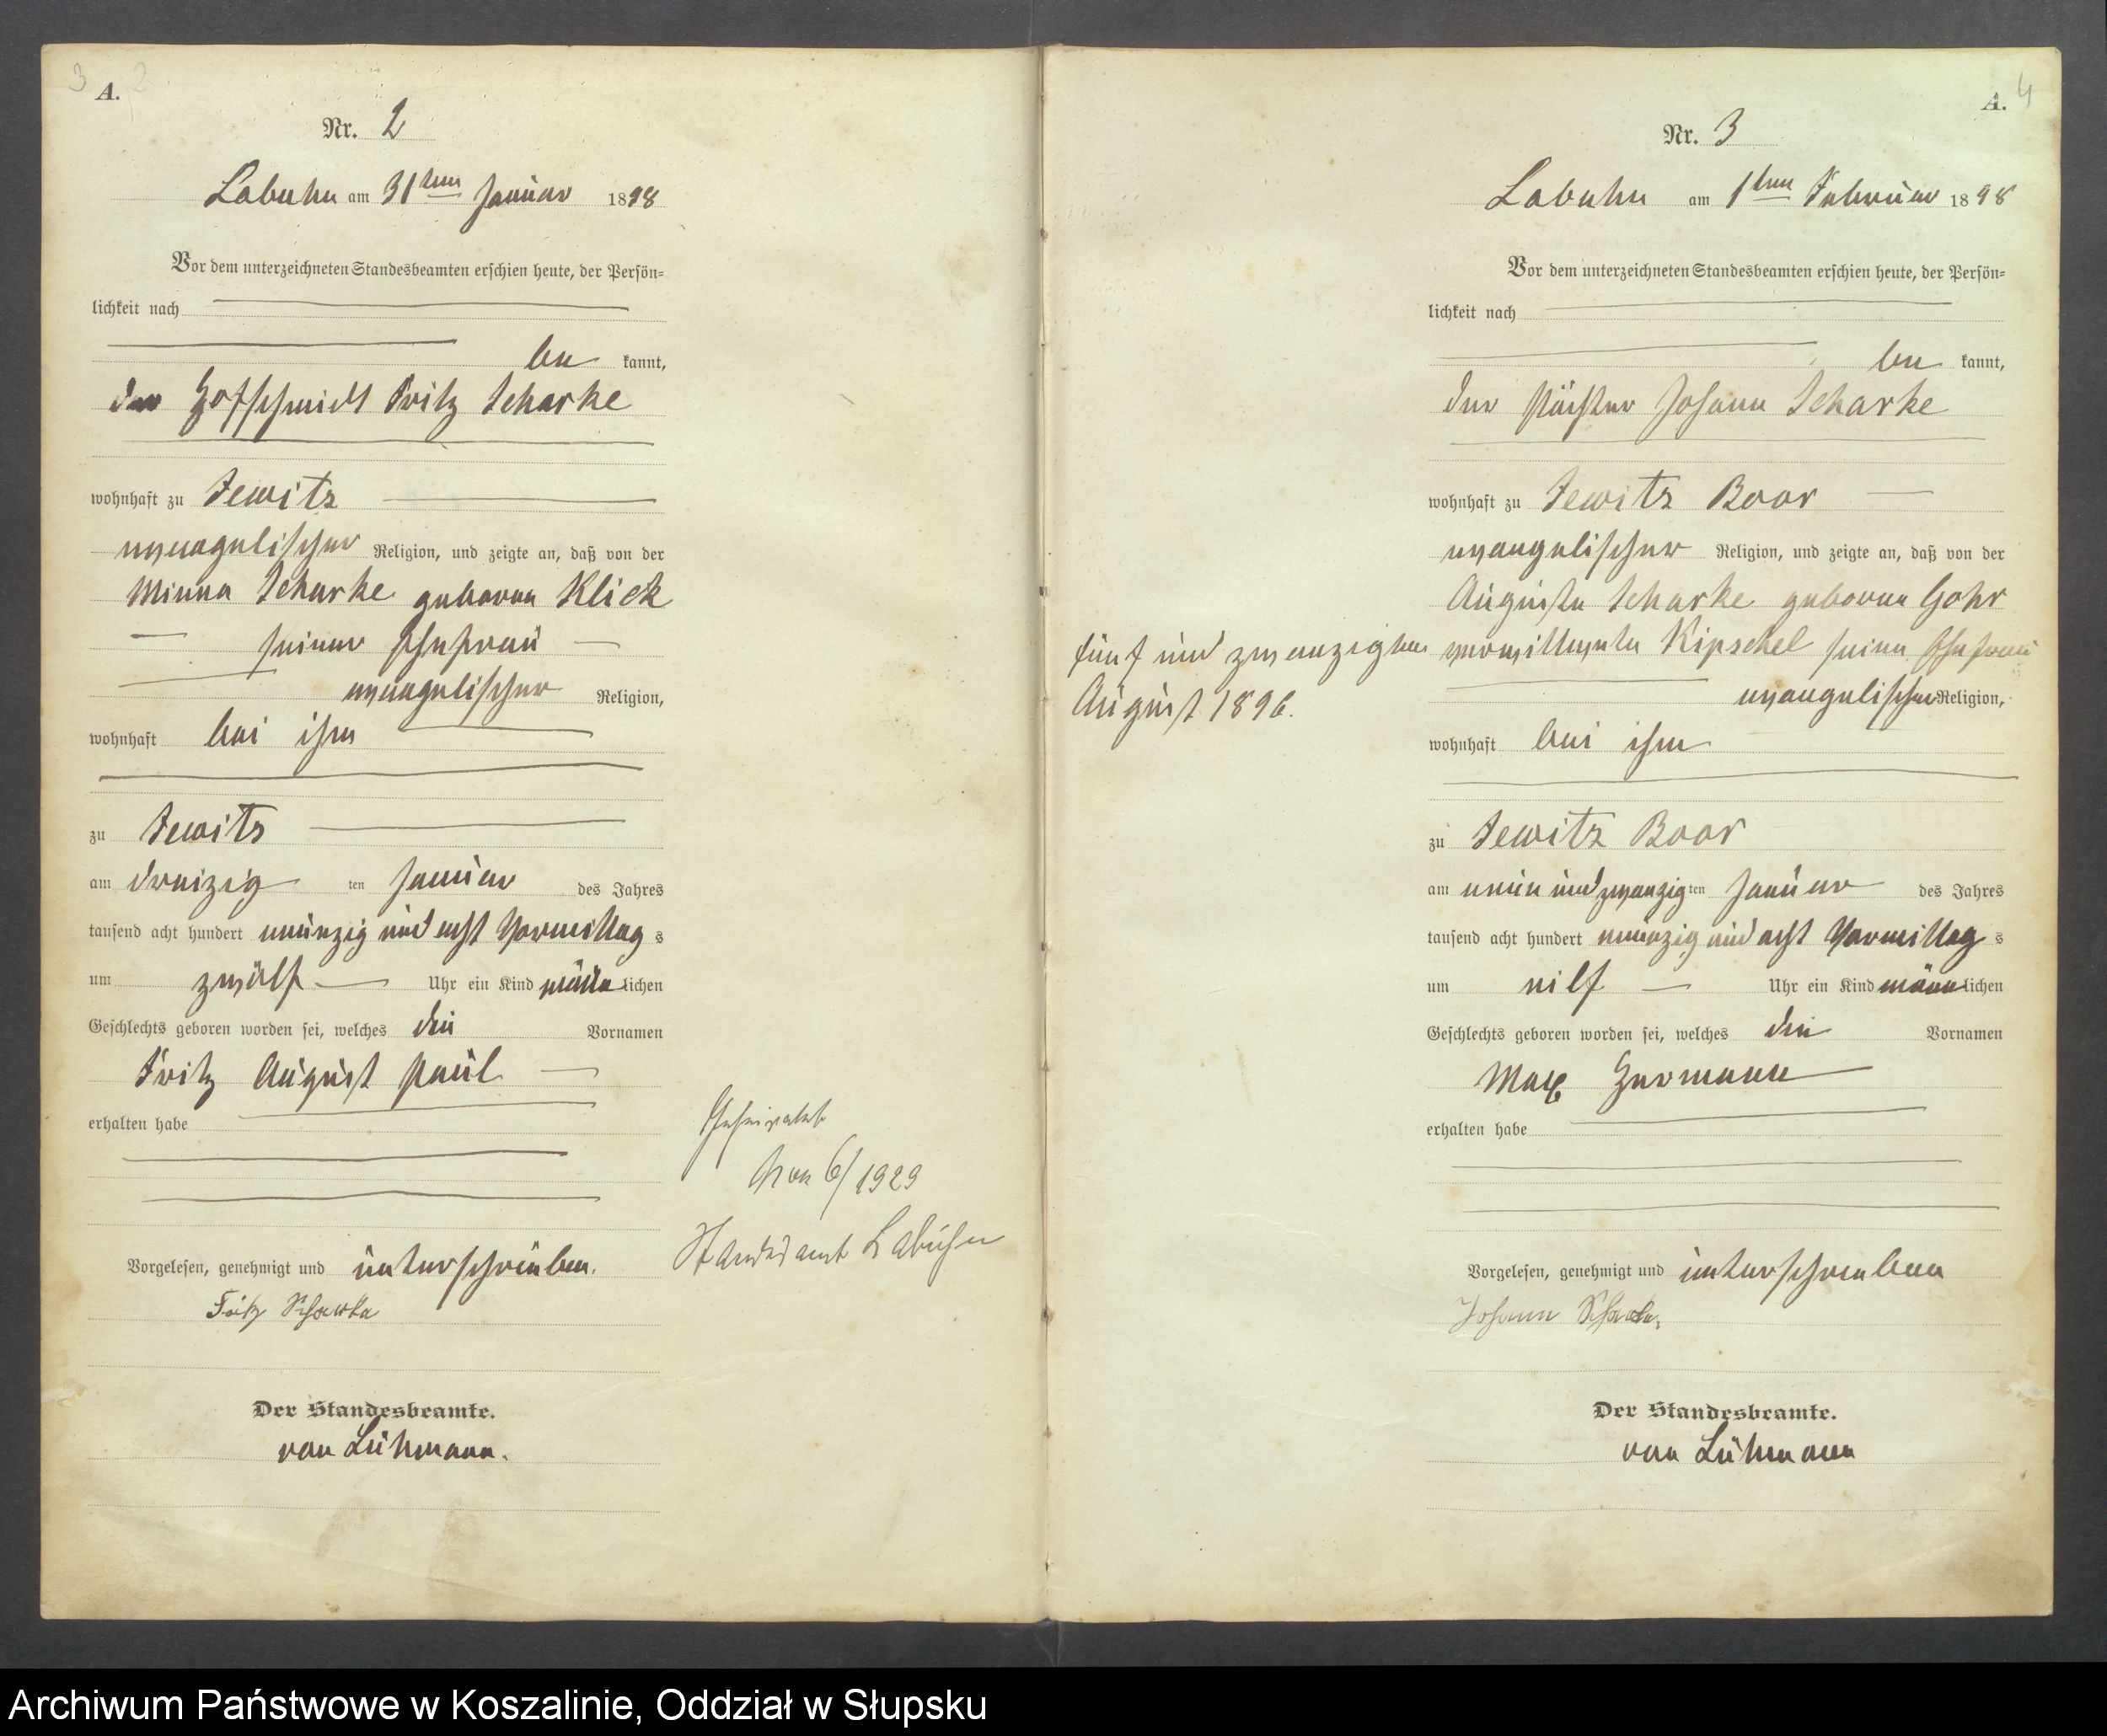 3 2
A.
Nr. 2
Labuhn am 31ten Januar 1898
Vor dem unterzeichneten Standesbeamten erschien heute, der Persön=
lichkeit nach
be kannt,
der Hofschmidt Fritz Scharke
wohnhaft zu Jewitz
evangelischer Religion, und zeigte an, daß von der
Minna Scharke geborne Klick
seiner Ehefrau
evangelischer Religion,
wohnhaft bei ihm
zu Jewitz
am dreizig ten Januar des Jahres
tausend acht hundert neunzig und acht Vormittag s
um zwölf Uhr ein Kind männ lichen
Geschlechts geboren worden sei, welches die Vornamen
Fritz August Paul
erhalten habe
Vorgelesen, genehmigt und unterschrieben.
Fritz Scharke
Der Standesbeamte.
von Lühmann.
Geheiratet
Nr. 6/1929
Standesamt Labuhn
4
A.
Nr. 3
Labuhn am 1ten Februar 1898
Vor dem unterzeichneten Standesbeamten erschien heute, der Persön=
lichkeit nach
be kannt,
der Pächter Johann Scharke
wohnhaft zu Jewitz Boor
evangelischer Religion, und zeigte an, daß von der
Auguste Scharke geborne Gohr
verwittwete Kipschel seine Ehefrau
evangelischer Religion,
wohnhaft bei ihm
zu Jewitz Boor
am neun und zwanzig ten Januar des Jahres
tausend acht hundert neunzig und acht Vormittag s
um eilf Uhr ein Kind männ lichen
Geschlechts geboren worden sei, welches die Vornamen
Max Hermann
erhalten habe
Vorgelesen, genehmigt und unterschrieben
Johann Scharke.
Der Standesbeamte.
von Lühmann
fünf und zwanzigten
August 1896.
Archiwum Państwowe w Koszalinie, Oddział w Słupsku